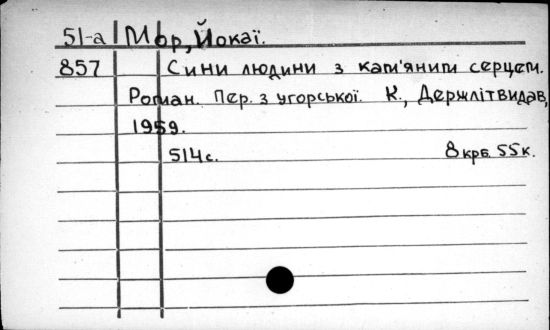 51-а Мор, Йокаї.
857 Сини людини з кам'яним серцем.
Роман. Пер. з угорської. К., Держлітвидав,
1959.
514 с. 8 крб. 55 к.